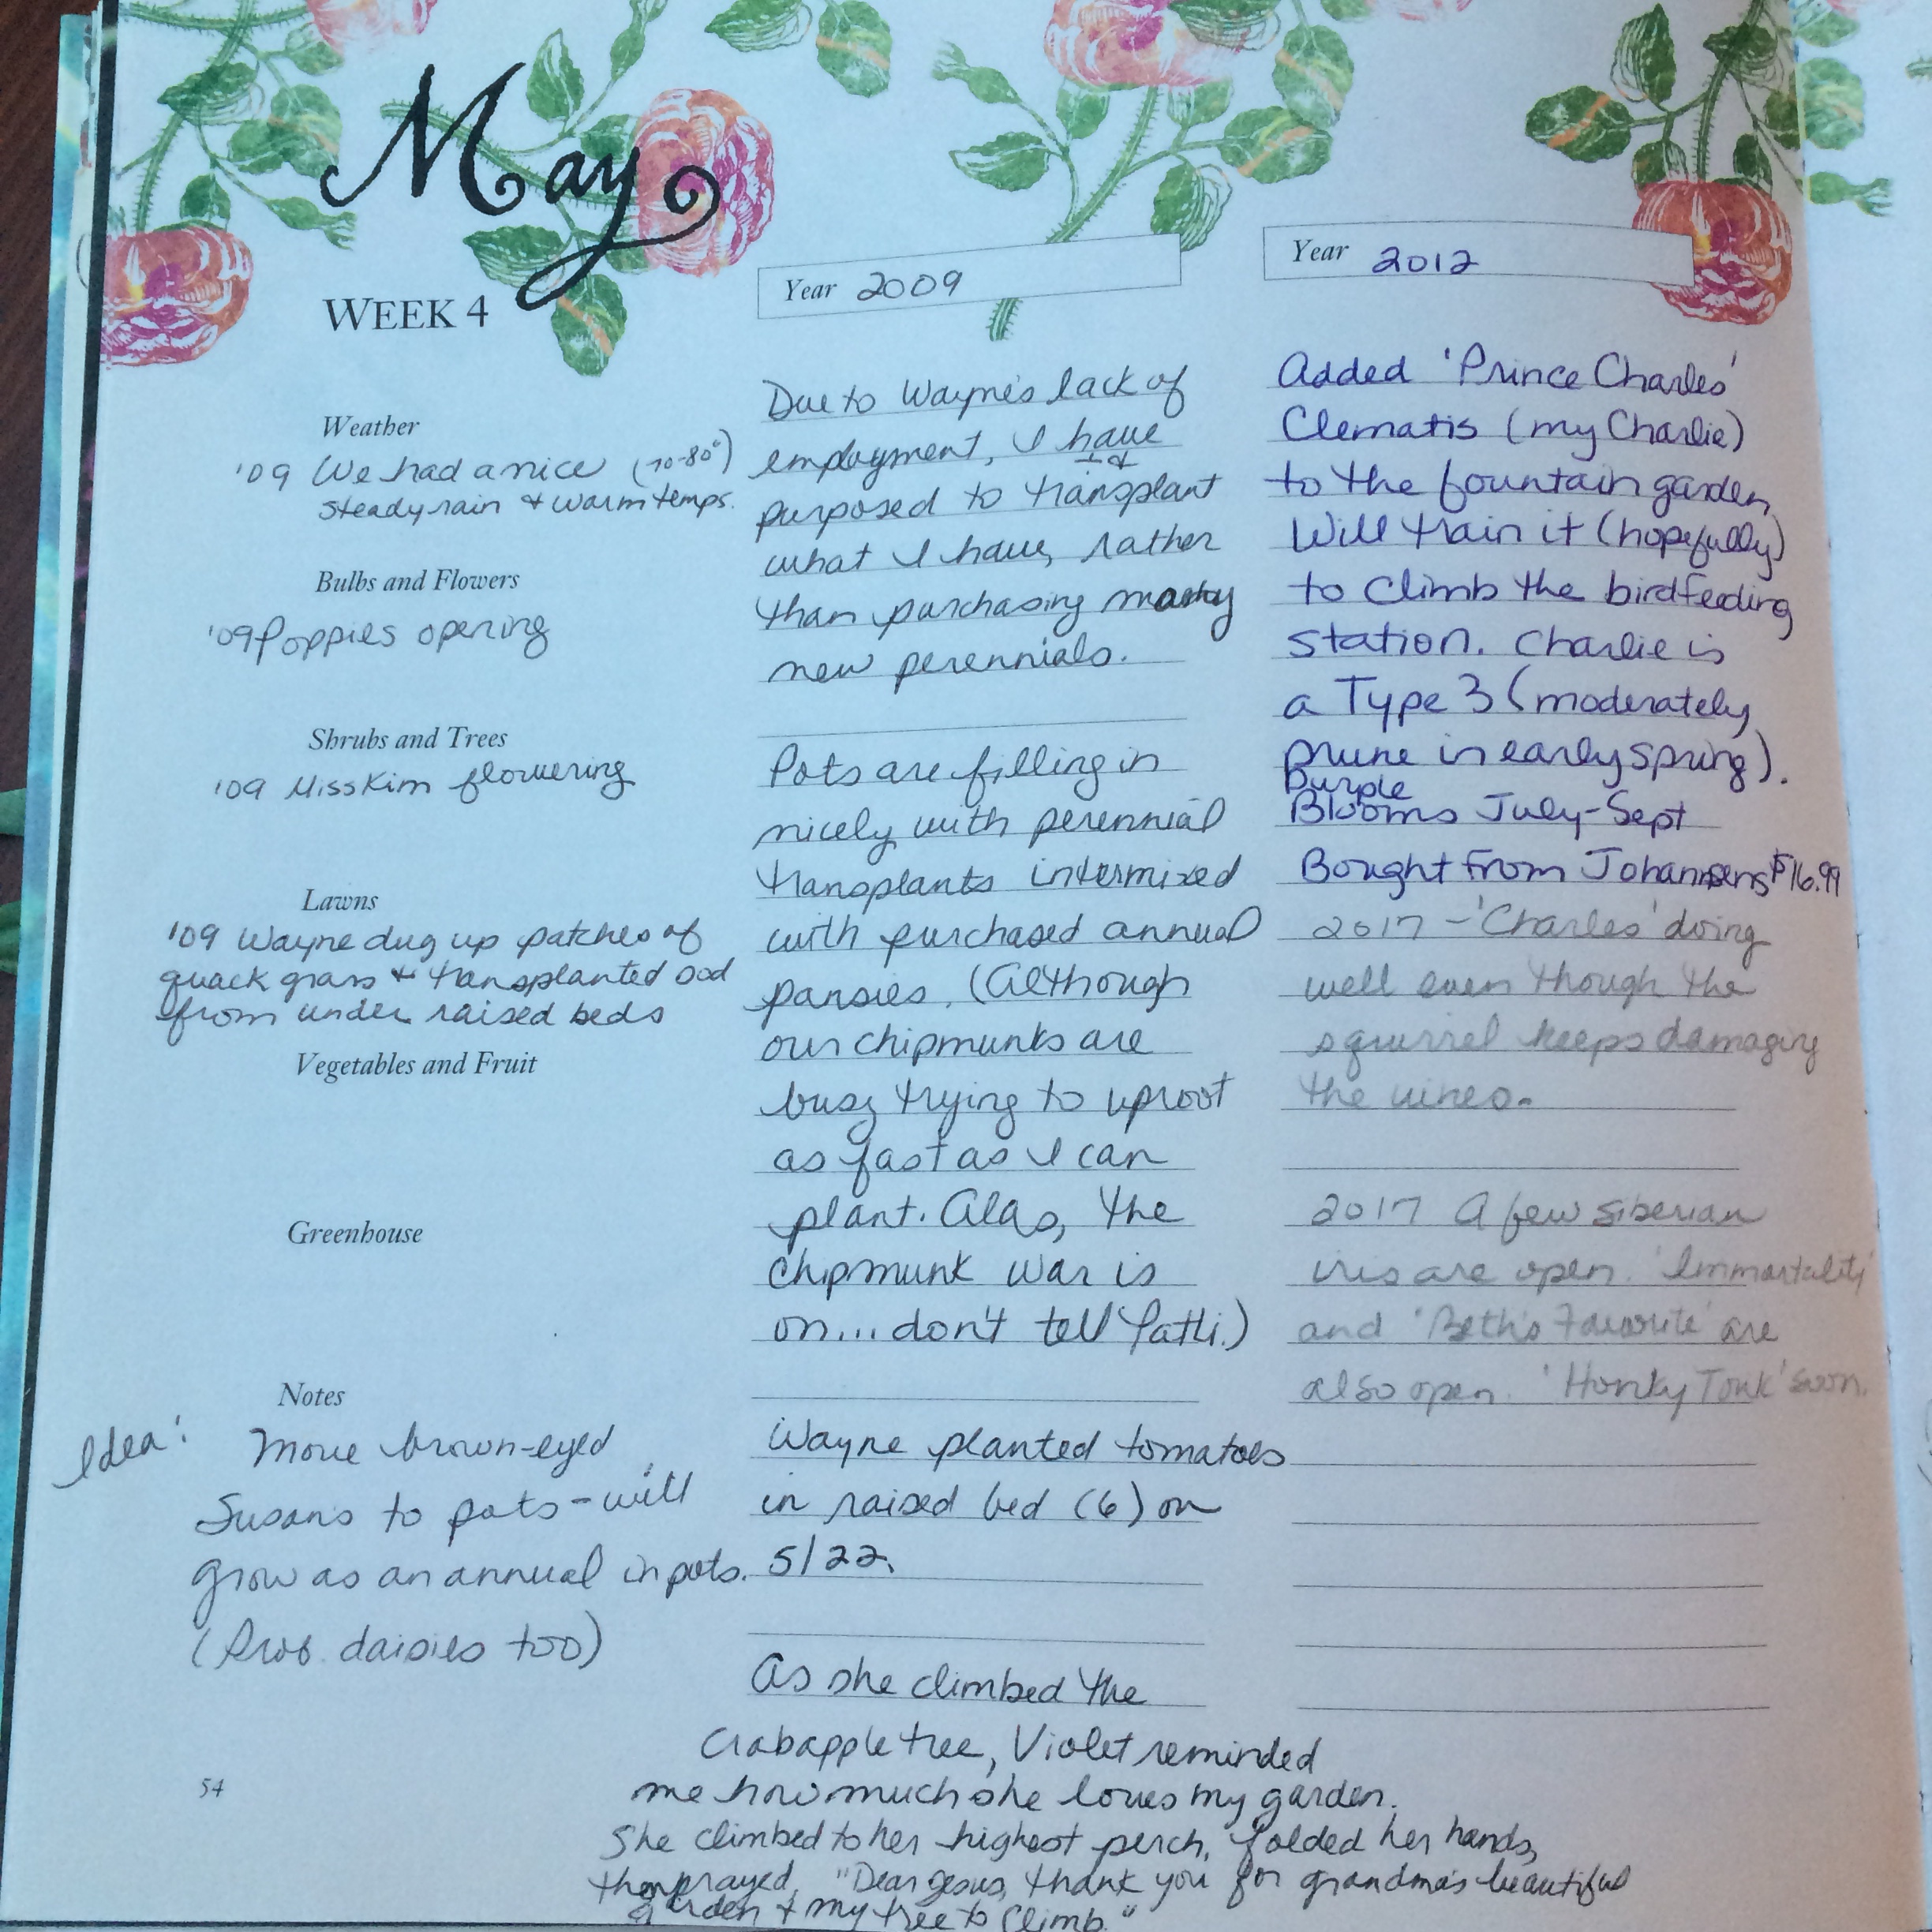 May
WEEK 4
Weather
'09 We had a nice (70-80°)
steady rain & warm temps.
Bulbs and Flowers
'09 Poppies opening
Shrubs and Trees
'09 Miss Kim flowering
Lawns
'09 Wayne dug up patches of
quack grass & transplanted sod
from under raised beds
Vegetables and Fruit
Greenhouse
Notes
Idea:
Move brown-eyed
Susans to pots - will
grow as an annual in pots.
(Prob. daisies too)
54
Year 2009
Due to Wayne's lack of
employment, I have
purposed to transplant
what I have, rather
than purchasing many
new perennials.
Pots are filling in
nicely with perennial
transplants intermixed
with purchased annual
pansies. (Although
our chipmunks are
busy trying to uproot
as fast as I can
plant. Alas, the
chipmunk war is
on... don't tell Patti.)
Wayne planted tomatoes
in raised bed (6) on
5/22.
As she climbed the
crabapple tree, Violet reminded
me how much she loves my garden.
She climbed to her highest perch, folded her hands,
then prayed, "Dear Jesus, thank you for grandma's beautiful
garden & my tree to climb."
Year 2012
Added 'Prince Charles'
Clematis (my Charlie)
to the fountain garden,
Will train it (hopefully)
to climb the birdfeeding
station. Charlie is
a Type 3 (moderately
prune in early spring).
Purple
Blooms July-Sept
Bought from Johannsens $16.99
2017 - 'Charles' doing
well even though the
squirrel keeps damaging
the vines.
2017 A few siberian
iris are open. 'Immortality'
and 'Beth's Favorite' are
also open. 'Honky Tonk' soon.